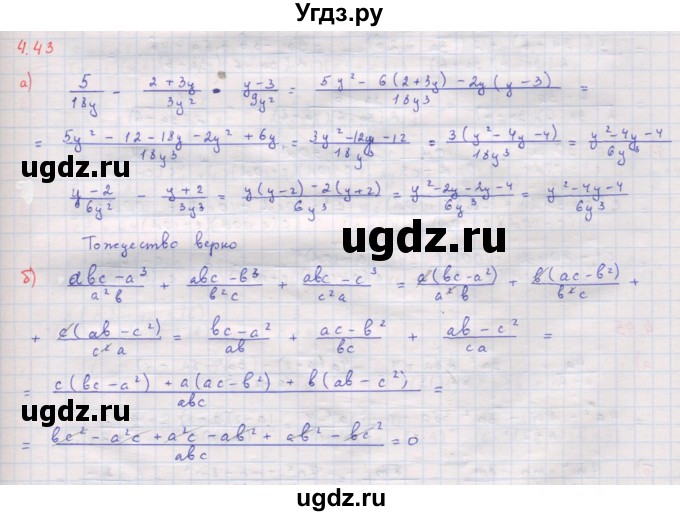 Угдз.ру
4.43
а) 5/18y - (2+3y)/3y³ - (y-3)/9y² = (5y² - 6(2+3y) - 2y(y-3))/18y³ =
= (5y² - 12 - 18y - 2y² + 6y)/18y³ = (3y² - 12y - 12)/18y³ = 3(y² - 4y - 4)/18y³ = (y² - 4y - 4)/6y³
(y-2)/6y² - (y+2)/3y³ = (y(y-2) - 2(y+2))/6y³ = (y² - 2y - 2y - 4)/6y³ = (y² - 4y - 4)/6y³
Тождество верно
б) (abc - a³)/a²b + (abc - b³)/b²c + (abc - c³)/c²a = a(bc - a²)/a²b + b(ac - b²)/b²c +
+ c(ab - c²)/c²a = (bc - a²)/ab + (ac - b²)/bc + (ab - c²)/ca =
= (c(bc - a²) + a(ac - b²) + b(ab - c²))/abc =
= (bc² - a²c + a²c - ab² + ab² - bc²)/abc = 0
ugdz.ru
ugdz.ru
ugdz.ru
ugdz.ru
ugdz.ru
ugdz.ru
ugdz.ru